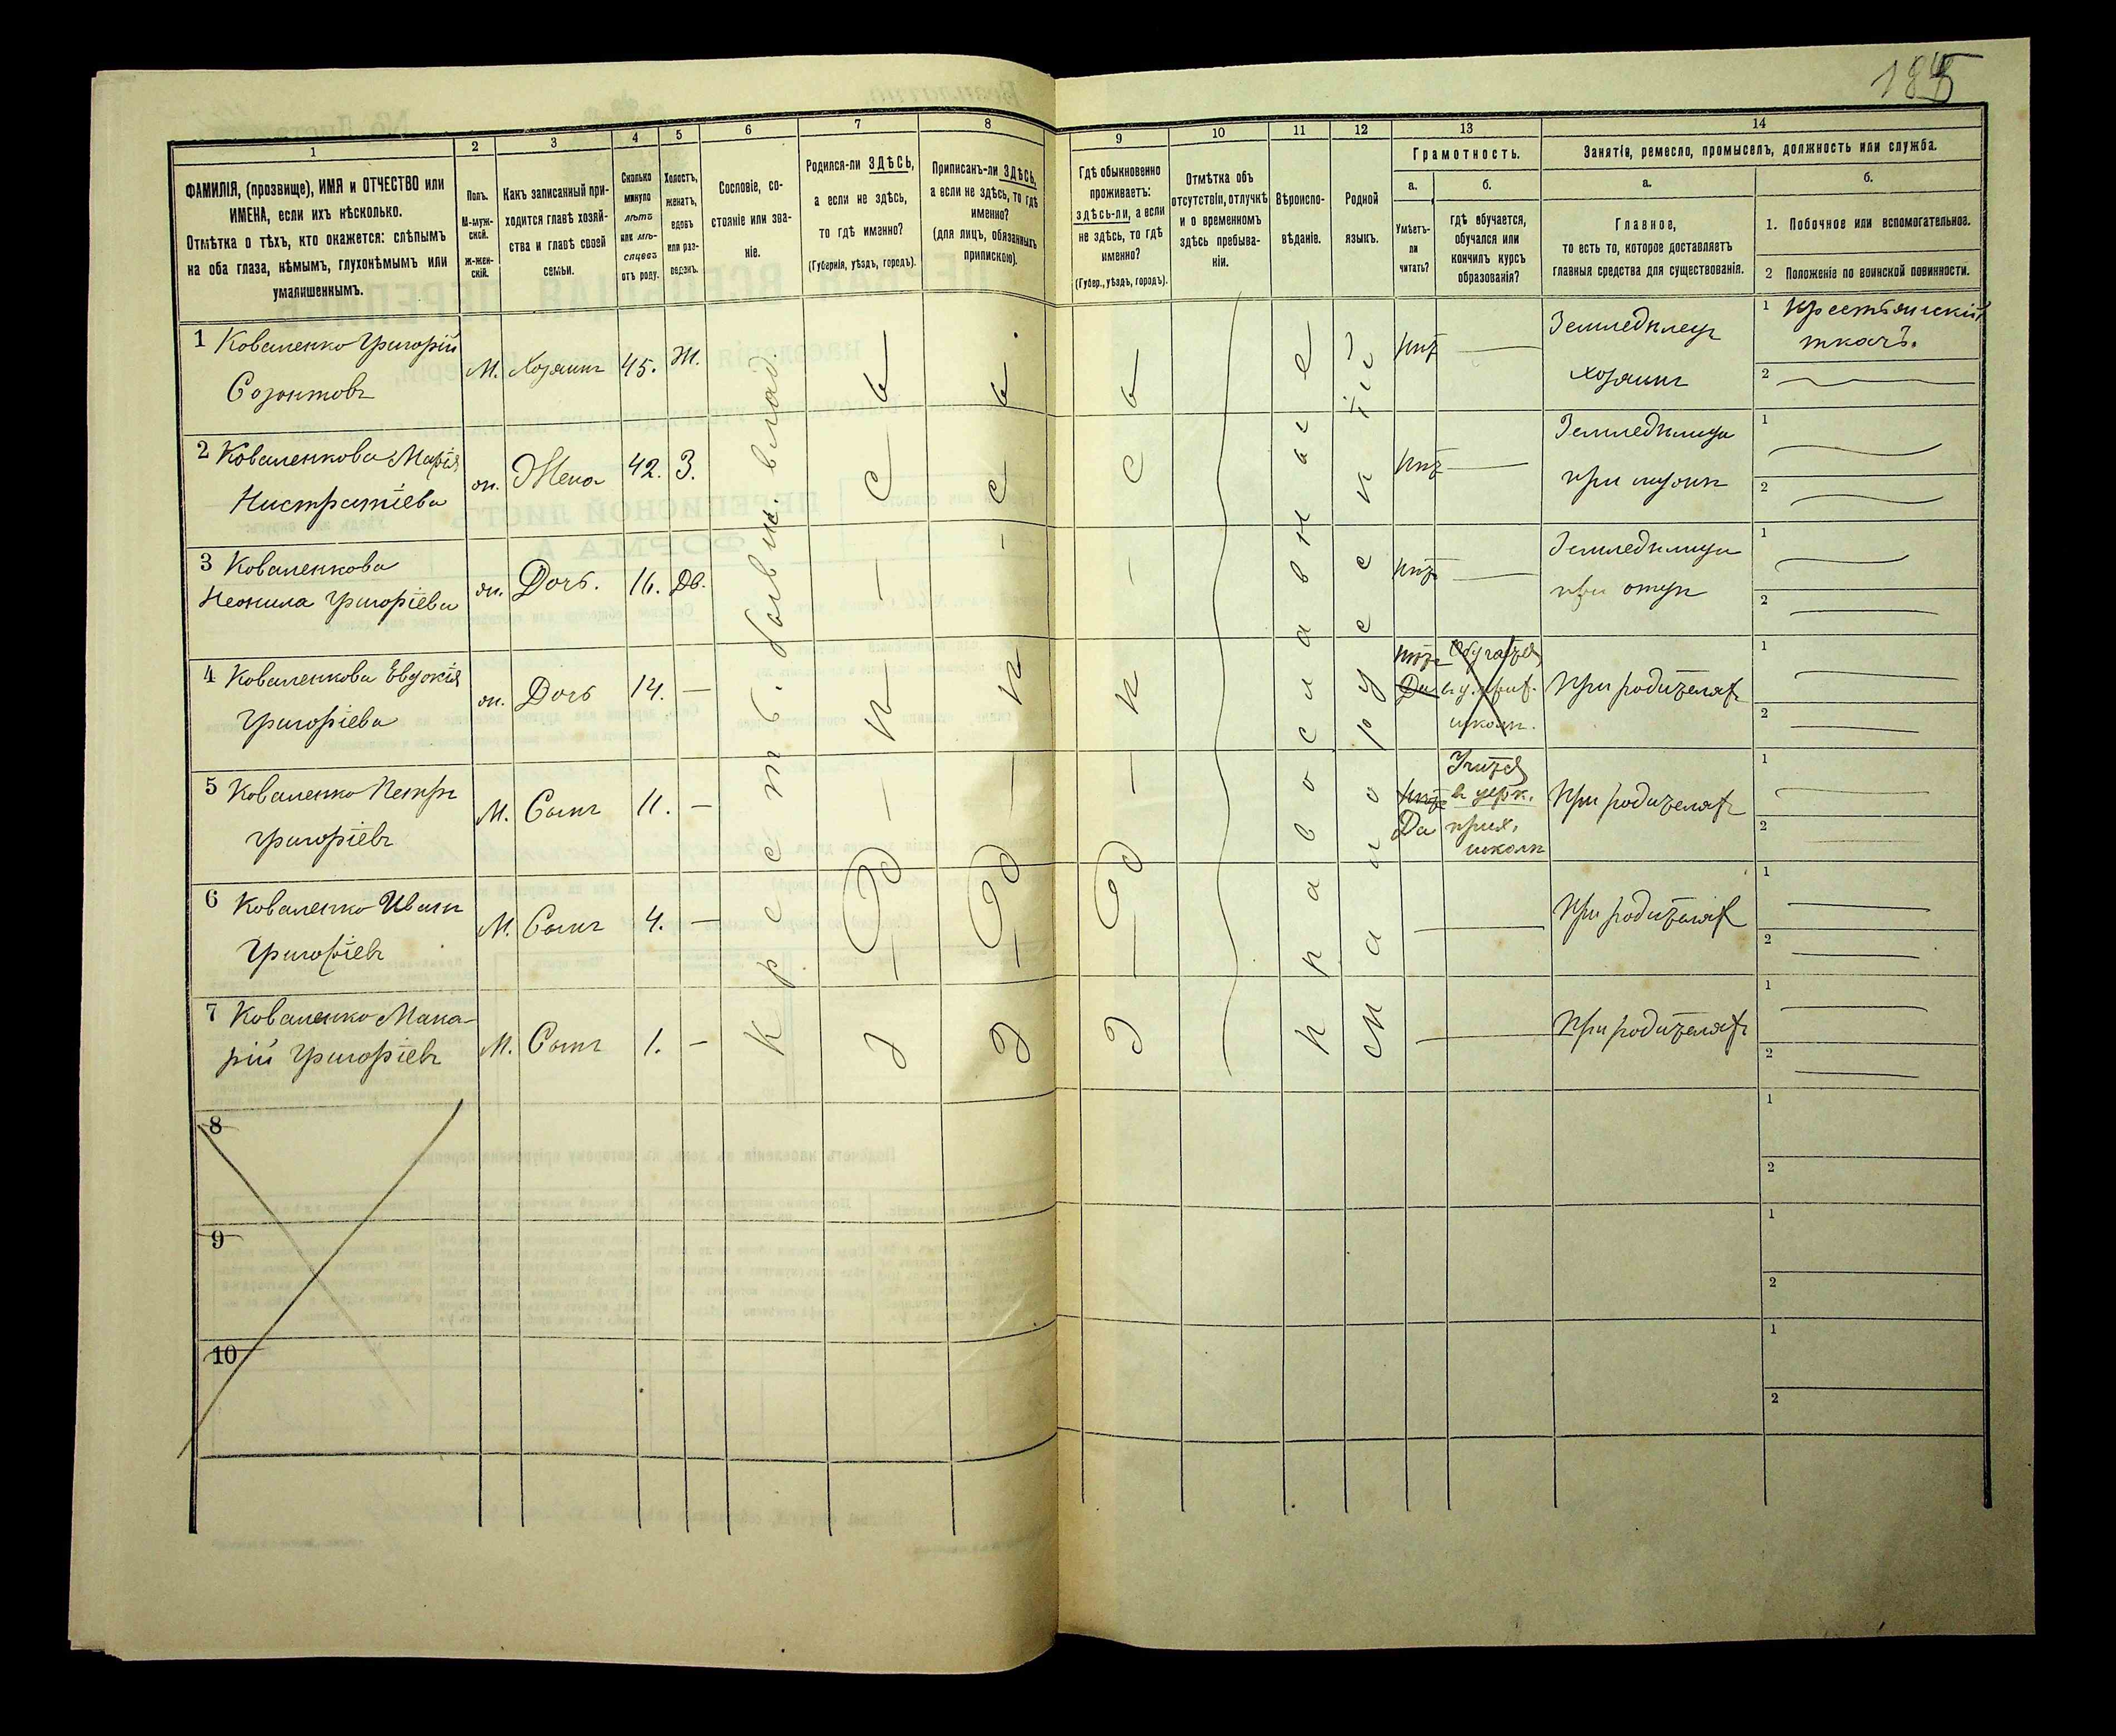 185
1
2
3
4
5
6
7
8
9
10
11
12
13
14
ФАМИЛІЯ, (прозвище), ИМЯ и ОТЧЕСТВО или
ИМЕНА, если ихъ нѣсколько.
Отмѣтка о тѣхъ, кто окажется: слѣпымъ
на оба глаза, нѣмымъ, глухонѣмымъ или
умалишеннымъ.
Полъ.
М-муж-
ской.
Ж-жен-
скій.
Какъ записанный при-
ходится главѣ хозяй-
ства и главѣ своей
семьи.
Сколько
минуло
лѣтъ
или мѣ-
сяцевъ
отъ роду.
Холостъ,
женатъ,
вдовъ
или раз-
веденъ.
Сословіе, со-
стояніе или зва-
ніе.
Родился-ли ЗДѢСЬ,
а если не здѣсь,
то гдѣ именно?
(Губернія, уѣздъ, городъ).
Приписанъ-ли ЗДѢСЬ,
а если не здѣсь, то гдѣ
именно?
(для лицъ, обязанныхъ
припискою).
Гдѣ обыкновенно
проживаетъ:
ЗДѢСЬ-ли, а если
не здѣсь, то гдѣ
именно?
(Губер., уѣздъ, городъ).
Отмѣтка объ
отсутствіи, отлучкѣ
и о временномъ
здѣсь пребыва-
ніи.
Вѣроиспо-
вѣданіе.
Родной
языкъ.
Грамотность.
а.
Умѣетъ-
ли
читать?
б.
гдѣ обучается,
обучался или
кончилъ курсъ
образованія?
Занятія, ремесло, промыселъ, должность или служба.
а.
Главное,
то есть то, которое доставляетъ
главныя средства для существованія.
б.
1. Побочное или вспомогательное.
2 Положеніе по воинской повинности.
1 Коваленко Григорій
Созонтовъ
М. Хозяинъ 45. Ж.
нѣтъ —
Земледѣлецъ
хозяинъ
1 Крестьянскій
ткачъ.
2
2 Коваленкова Марія
Нистратіева
ж. Жена 42. З.
нѣтъ —
Земледѣлица
при мужѣ
1
2
3 Коваленкова
Неонила Григоріева
ж. Дочь. 16. Дв.
нѣтъ —
Земледѣлица
при отцѣ
1
2
4 Коваленкова Евдокія
Григоріева
ж. Дочь 14. —
нѣтъ
Да
Обучается
въ ц. прих.
школѣ.
При родителяхъ
1
2
5 Коваленко Петръ
Григоріевъ
М. Сынъ 11. —
нѣтъ
Да
Учится
въ церк.
прих.
школѣ
При родителяхъ
1
2
6 Коваленко Иванъ
Григоріевъ
М. Сынъ 4. —
—
При родителяхъ
1
2
7 Коваленко Мака-
рій Григоріевъ
М. Сынъ 1. —
—
При родителяхъ
1
2
Здѣсь
Здѣсь
Здѣсь
Православное
Малорусскій
8
1
2
9
1
2
10
1
2